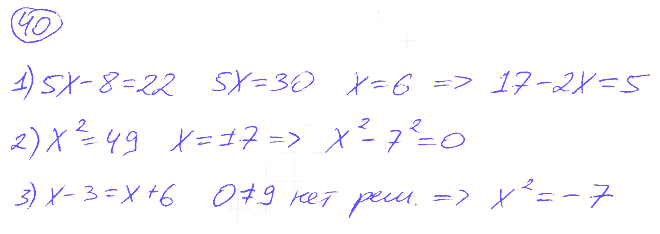 40
1) 5x-8=22 5x=30 x=6 => 17-2x=5
2) x²=49 x=±7 => x²-7²=0
3) x-3=x+6 0≠9 нет реш. => x²=-7